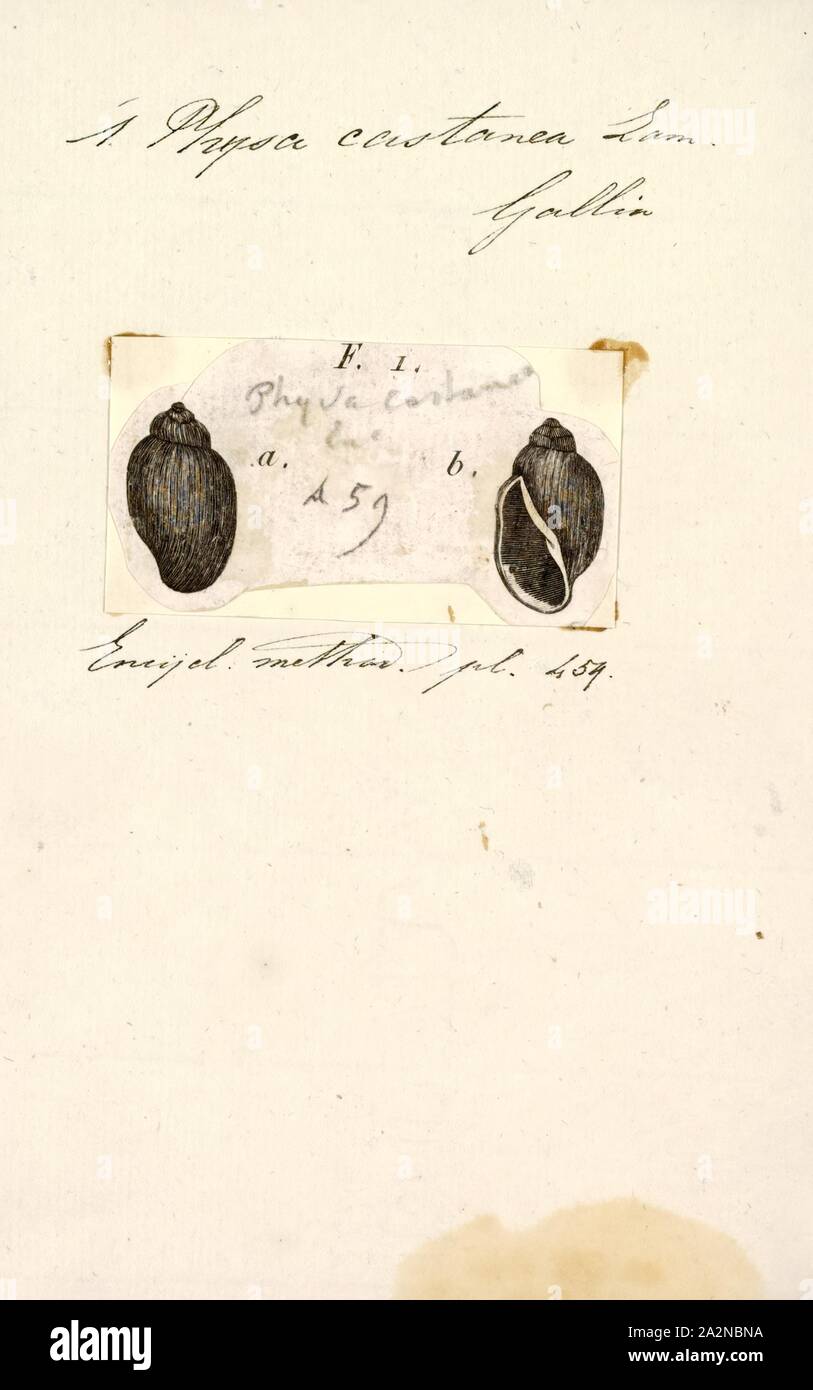 1. Physa castanea Lam.
Gallia
F. 1.
Physa castanea
Enc
a. b.
459
Encycl. method. pl. 459.
alamy
alamy
Image ID: A2NBNA
www.alamy.com